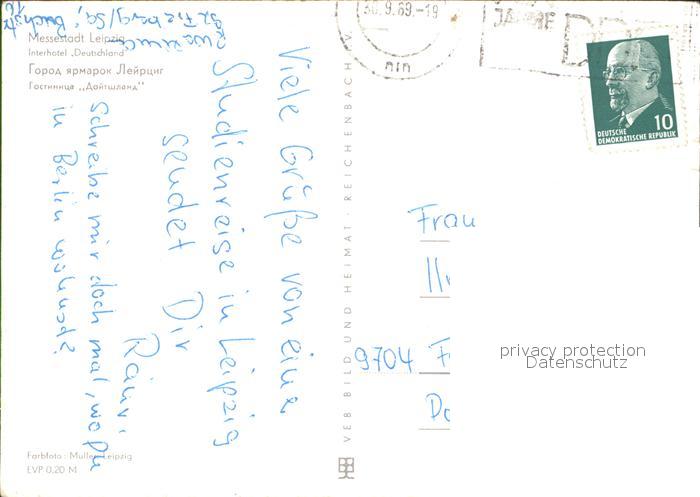 Messestadt Leipzig
Interhotel „Deutschland"
Город ярмарок Лейпциг
Гостиница „Дойтшланд"
Viele Grüße von eine
Studienreise in Leipzig
sendet Dir
Schreibe mir doch mal, wo Du
in Berlin wohnst?
Farbfoto: Müller, Leipzig
EVP 0,20 M
VEB BILD UND HEIMAT · REICHENBACH I. V.
30.9.69.-19
JAHRE
DEUTSCHE
DEMOKRATISCHE REPUBLIK
10
Frau
9704
privacy protection
Datenschutz